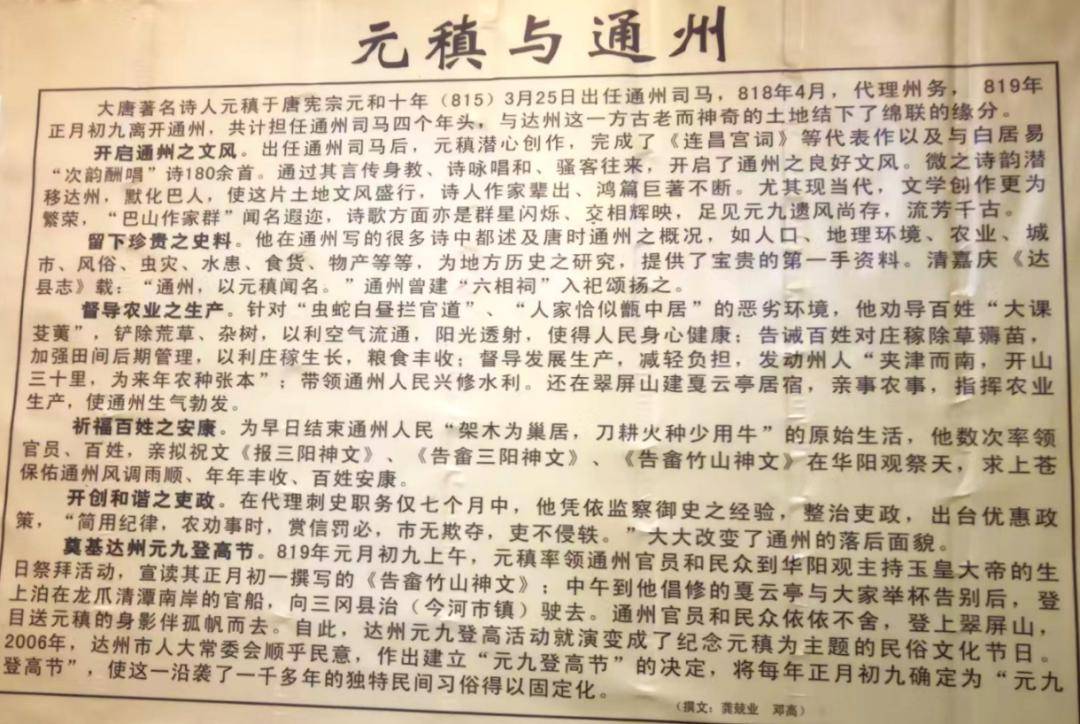 元稹与通州
大唐著名诗人元稹于唐宪宗元和十年（815）3月25日出任通州司马，818年4月，代理州务， 819年
正月初九离开通州，共计担任通州司马四个年头，与达州这一方古老而神奇的土地结下了绵联的缘分。
开启通州之文风。出任通州司马后，元稹潜心创作，完成了《连昌宫词》等代表作以及与白居易
“次韵酬唱”诗180余首。通过其言传身教、诗咏唱和、骚客往来，开启了通州之良好文风。微之诗韵潜
移达州，默化巴人，使这片土地文风盛行，诗人作家辈出、鸿篇巨著不断。尤其现当代，文学创作更为
繁荣，“巴山作家群”闻名遐迩，诗歌方面亦是群星闪烁、交相辉映，足见元九遗风尚存，流芳千古。
留下珍贵之史料。他在通州写的很多诗中都述及唐时通州之概况，如人口、地理环境、农业、城
市、风俗、虫灾、水患、食货、物产等等，为地方历史之研究，提供了宝贵的第一手资料。清嘉庆《达
县志》载：“通州，以元稹闻名。”通州曾建“六相祠”入祀颂扬之。
督导农业之生产。针对“虫蛇白昼拦官道”、“人家恰似甑中居”的恶劣环境，他劝导百姓“大课
芟荑”，铲除荒草、杂树，以利空气流通，阳光透射，使得人民身心健康；告诫百姓对庄稼除草薅苗，
加强田间后期管理，以利庄稼生长，粮食丰收；督导发展生产，减轻负担，发动州人“夹津而南，开山
三十里，为来年农种张本”；带领通州人民兴修水利。还在翠屏山建戛云亭居宿，亲事农事，指挥农业
生产，使通州生气勃发。
祈福百姓之安康。为早日结束通州人民“架木为巢居，刀耕火种少用牛”的原始生活，他数次率领
官员、百姓，亲拟祝文《报三阳神文》、《告畲三阳神文》、《告畲竹山神文》在华阳观祭天，求上苍
保佑通州风调雨顺、年年丰收、百姓安康。
开创和谐之吏政。在代理刺史职务仅七个月中，他凭依监察御史之经验，整治吏政，出台优惠政
策，“简用纪律，农劝事时，赏信罚必，市无欺夺，吏不侵轶。”大大改变了通州的落后面貌。
奠基达州元九登高节。819年元月初九上午，元稹率领通州官员和民众到华阳观主持玉皇大帝的生
日祭拜活动，宣读其正月初一撰写的《告畲竹山神文》；中午到他倡修的戛云亭与大家举杯告别后，登
上泊在龙爪清潭南岸的官船，向三冈县治（今河市镇）驶去。通州官员和民众依依不舍，登上翠屏山，
目送元稹的身影伴孤帆而去。自此，达州元九登高活动就演变成了纪念元稹为主题的民俗文化节日。
2006年，达州市人大常委会顺乎民意，作出建立“元九登高节”的决定，将每年正月初九确定为“元九
登高节”，使这一沿袭了一千多年的独特民间习俗得以固定化。
（撰文：龚兢业 邓高）